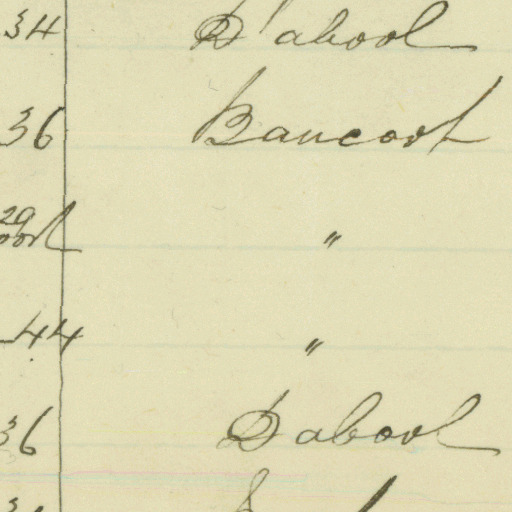 34 Dabool
36 Bancoot
29 "
44 "
36 Dabool